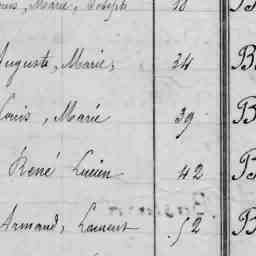 Louis, Marie, Joseph 18
Auguste, Marie, 34 B
Louis, Marie 39 B
René Lucien 42 B
Armand, Laurent 52 B